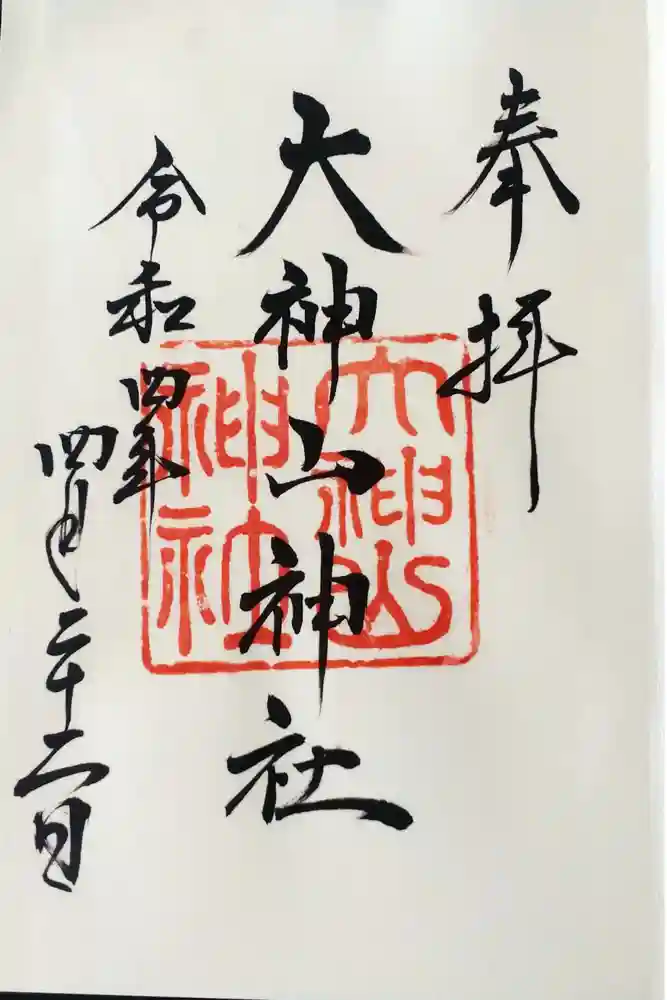 奉拝
大神山神社
大神山
神社
令和四年
四月二十二日